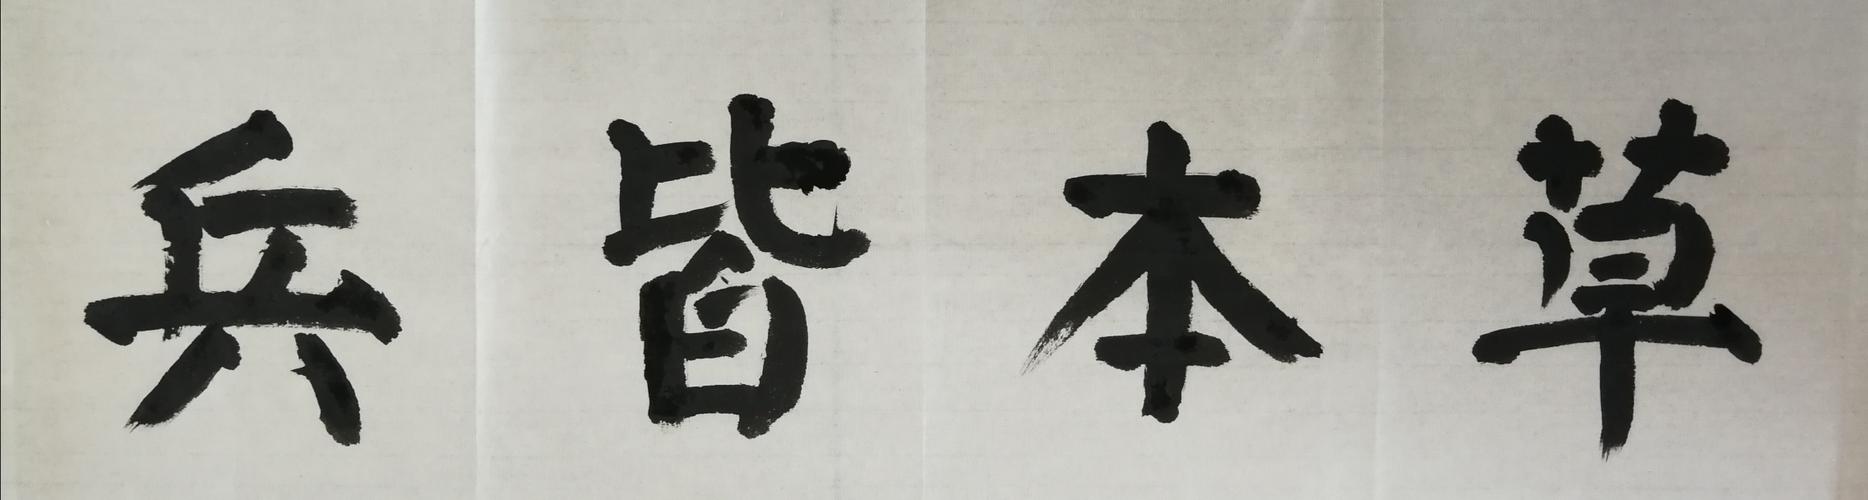 草本皆兵